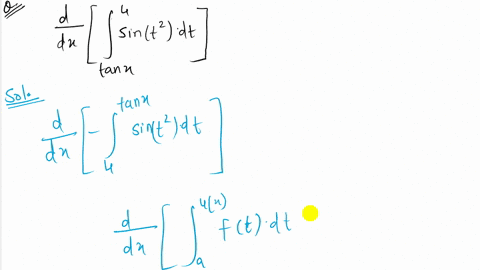 Q. d/dx [ ∫_{tanx}^{4} sin(t²)·dt ]
Sol.
d/dx [ - ∫_{4}^{tanx} sin(t²)dt ]
d/dx [ ∫_{a}^{u(x)} f(t)·dt